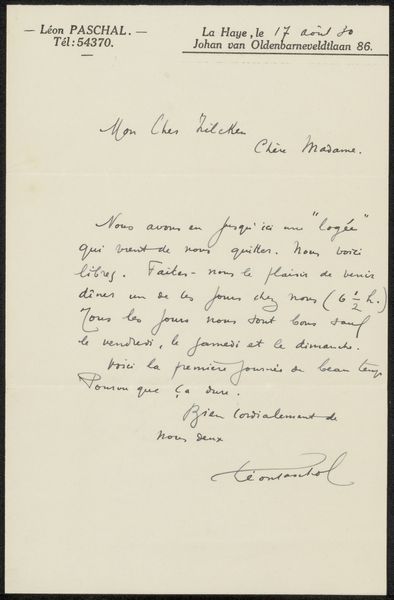 — Léon PASCHAL. —
Tél: 54370.
La Haye, le 17 août 30
Johan van Oldenbarneveldtlaan 86.
Mon Cher Zilcken
Chère Madame.
Nous avons eu jusqu'ici une "logée"
qui vient de nous quitter. Nous voici
libres. Faites-nous le plaisir de venir
dîner un de ces jours chez nous (6 ½ h.)
Tous les jours nous sont bons sauf
le vendredi, le samedi et le dimanche.
Voici la première journée de beau temps
Pourvu que ça dure.
Bien cordialement de
nous deux
LéonPaschal